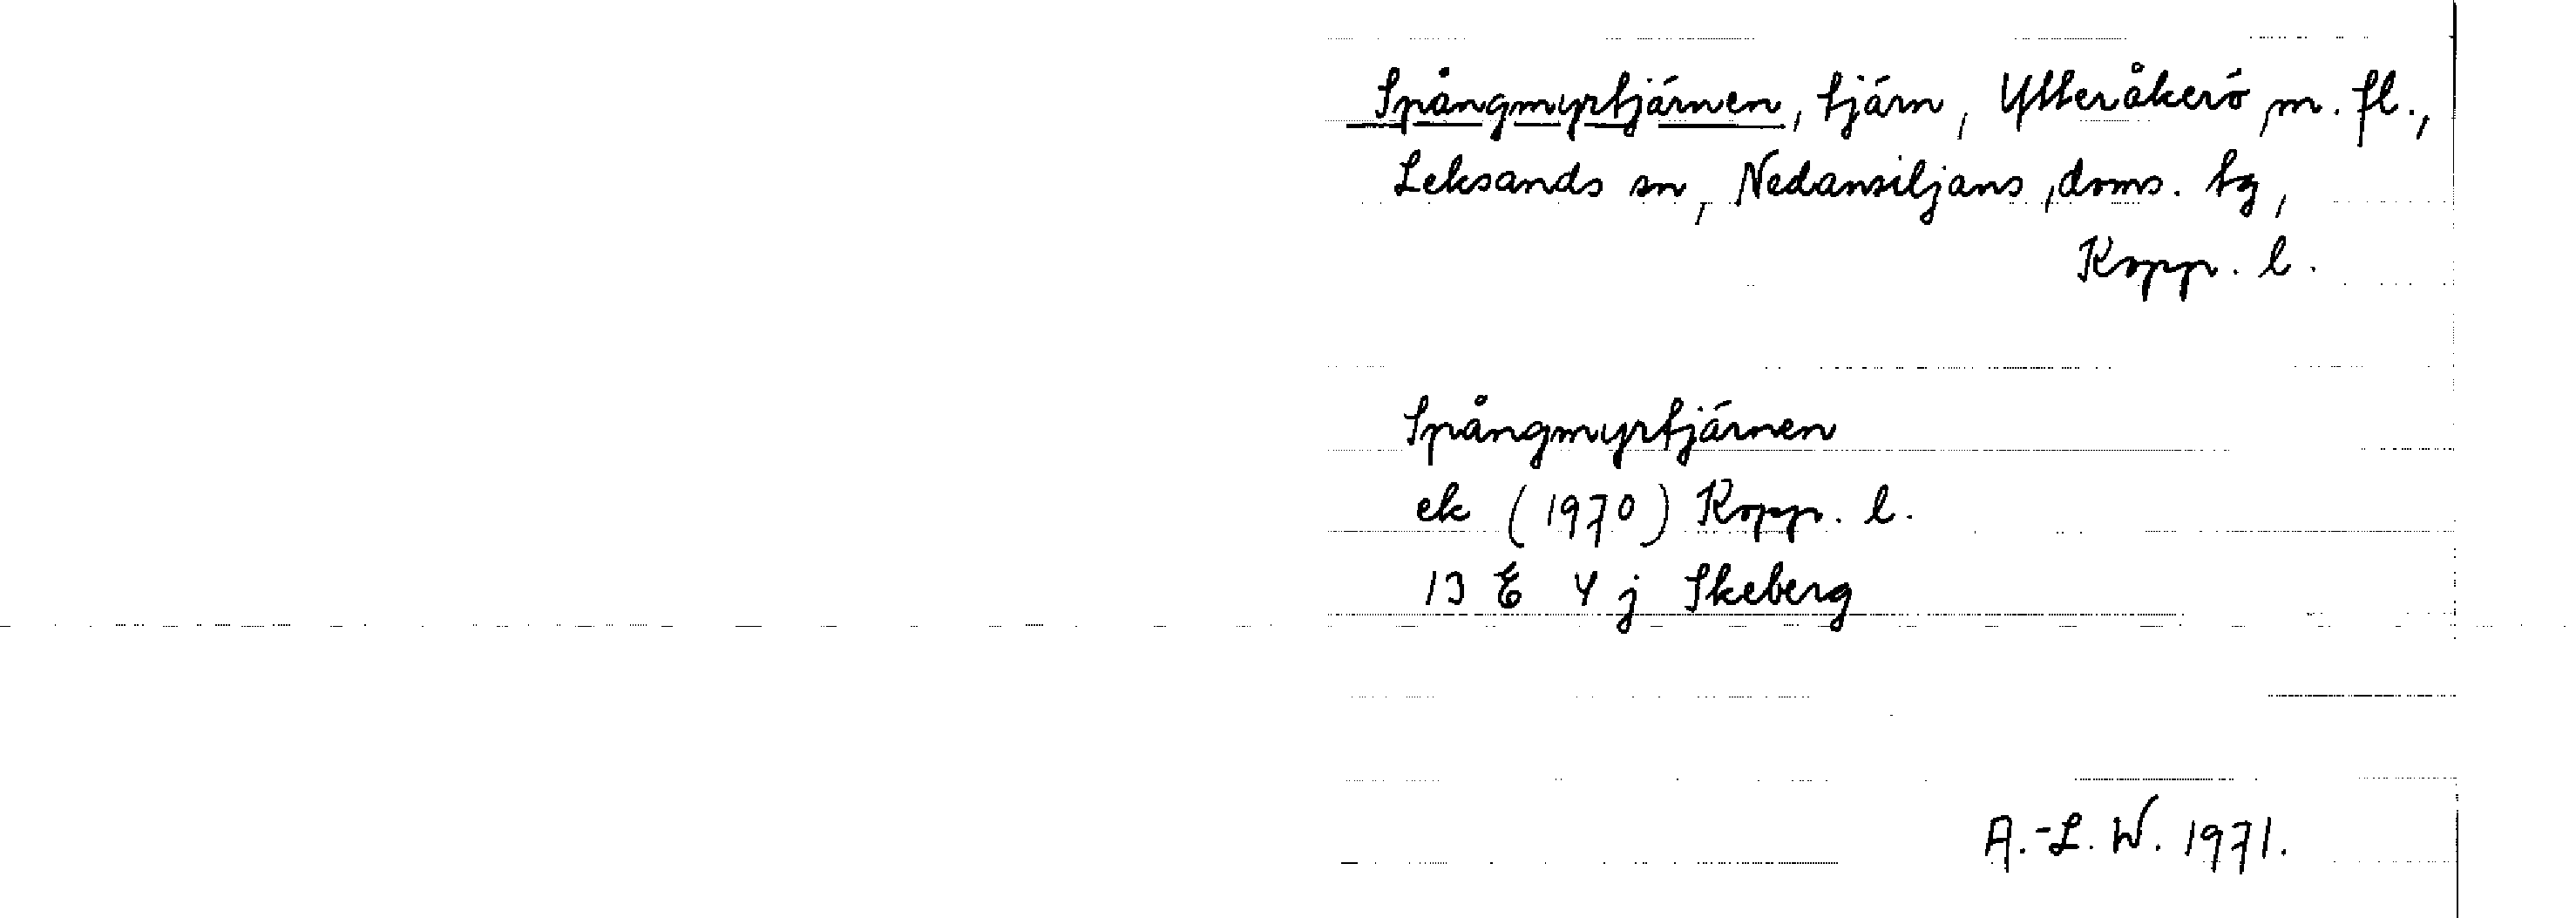 Spångmyrtjärnen, tjärn, Ytteråkerö, m. fl.,
Leksands sn, Nedansiljans, doms. tg,
Kopp. l.
Spångmyrtjärnen
ek (1970) Kopp. l.
13 E 4 j Skeberg
A.-L. W. 1971.